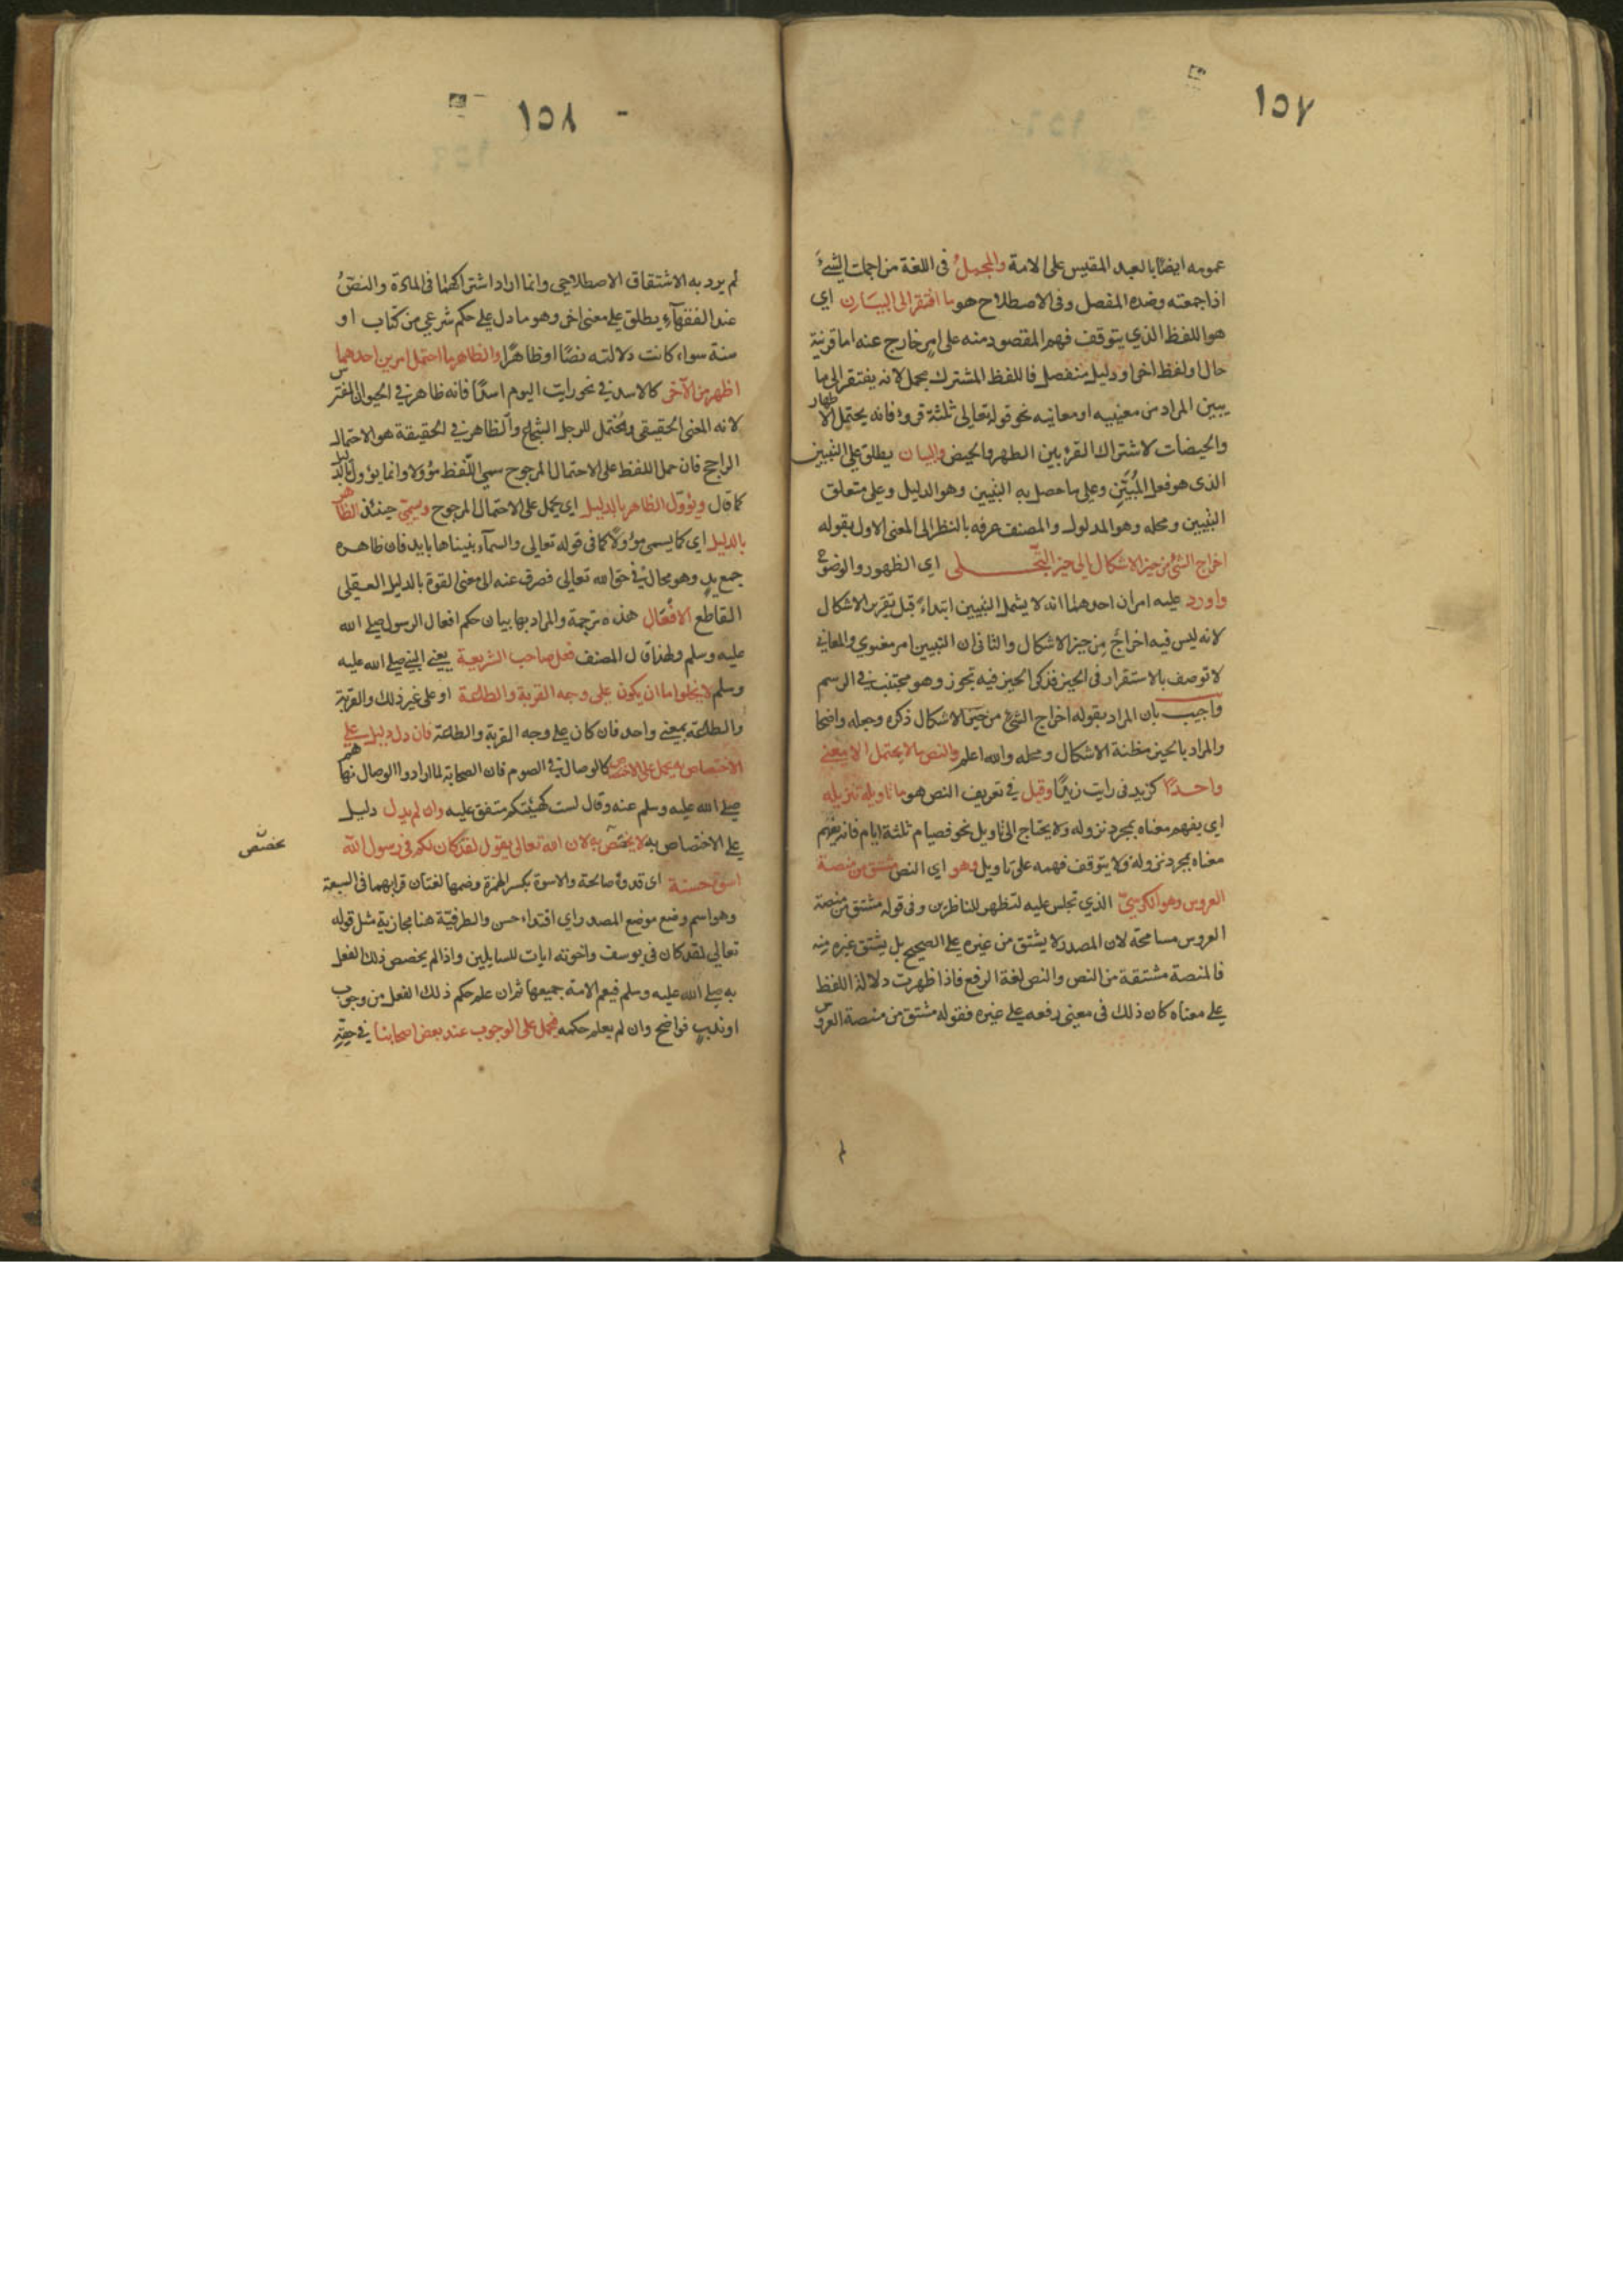 ١٥٧
عمومه ايضا بالعبد المقيس على الامة والمجمل في اللغة من اجملت الشئ
اذا جمعته وضده المفصل وفي الاصطلاح هو ما افتقر الى البيان اي
هو اللفظ الذي يتوقف فهم المقصود منه على امر خارج عنه اما قرينة
حال او لفظ اخر او دليل منفصل فاللفظ المشترك مجمل لانه يفتقر الى ما
يبين المراد من معنييه او معانيه نحو قوله تعالى ثلثة قروء فانه يحتمل الاطهار
والحيضات لاشتراك القرء بين الطهر والحيض والبيان يطلق على التبيين
الذي هو فعل المُبَيِّنِ وعلى ما حصل به التبيين وهو الدليل وعلى متعلق
التبيين ومحله وهو المدلول والمصنف عرفه بالنظر الى المعنى الاول بقوله
اخراج الشئ من حيز الاشكال الى حيز التجلي اي الظهور والوضوح
واورد عليه امران احدهما انه لا يشمل التبيين ابتداءً قبل تقرير الاشكال
لانه ليس فيه اخراج من حيز الاشكال والثاني ان التبيين امر معنوي والمعاني
لا توصف بالاستقرار في الحيز فذكر الحيز فيه تجوز وهو مجتنب في الرسم
واجيب بان المراد بقوله اخراج الشئ من حيز الاشكال ذكره وجعله واضحا
والمراد بالحيز مظنة الاشكال ومحله والله اعلم والنص ما لا يحتمل الا معنى
واحدًا كزيد في رايت زيدًا وقيل في تعريف النص هو ما تاويله تنزيله
اي يفهم معناه بمجرد نزوله ولا يحتاج الى تاويل نحو فصيام ثلثة ايام فانه يفهم
معناه بمجرد نزوله ولا يتوقف فهمه على تاويل وهو اي النص مشتق من منصة
العروس وهو الكرسيّ الذي تجلس عليه لتظهر للناظرين وفي قوله مشتق من منصة
العروس مسامحة لان المصدر لا يشتق من غيره على الصحيح بل يشتق غيره منه
فالمنصة مشتقة من النص والنص لغة الرفع فاذا ظهرت دلالة اللفظ
على معناه كان ذلك في معنى رفعه على غيره فقوله مشتق من منصة العروس
١٥٨
لم يرد به الاشتقاق الاصطلاحي وانما اراد اشتراكهما في المادة والنصّ
عند الفقهآء يطلق على معنى اخر وهو ما دل على حكم شرعي من كتاب او
سنة سواء كانت دلالته نصًا او ظاهرًا والظاهر ما احتمل امرين احدهما
اظهر من الآخر كالاسد في نحو رايت اليوم اسدًا فانه ظاهر في الحيوان المفترس
لانه المعنى الحقيقي ومحتمل للرجل الشجاع والظاهر في الحقيقة هو الاحتمال
الراجح فان حمل اللفظ على الاحتمال المرجوح سمي اللفظ مؤولا وانما يؤول بالدليل
كما قال ويؤول الظاهر بالدليل اي يحمل على الاحتمال المرجوح ويسمّى حينئذ الظاهر
بالدليل اي كما يسمى مؤولًا كما في قوله تعالى والسمآء بنيناها بايد فان ظاهره
جمع يدٍ وهو محال في حق الله تعالى فصرف عنه الى معنى القوة بالدليل العقلي
القاطع الافعال هذه ترجمة والمراد بها بيان حكم افعال الرسول صلى الله
عليه وسلم ولهذا قال المصنف فعل صاحب الشريعة يعني النبي صلى الله عليه
وسلم لا يخلوا اما ان يكون على وجه القربة والطاعة او على غير ذلك والقربة
والطاعة بمعنى واحد فان كان على وجه القربة والطاعة فان دل دليل على
الاختصاص به يحمل على الاختصاص كالوصال في الصوم فان الصحابة لما ارادوا الوصال نهاهم
صلى الله عليه وسلم عنه وقال لست كهيئتكم متفق عليه وان لم يدل دليل
على الاختصاص به لا يختص به لان الله تعالى يقول لقد كان لكم في رسول الله
يخصّص
اسوة حسنة اي قدوة صالحة والاسوة بكسر الهمزة وضمها لغتان قرابهما في السبعة
وهو اسم وضع موضع المصدر اي اقتداء حسن والظرفية هنا مجازية مثل قوله
تعالى لقد كان في يوسف واخوته ايات للسايلين واذا لم يخصص ذلك الفعل
به صلى الله عليه وسلم فيعم الامة جميعها ثم ان علم حكم ذلك الفعل من وجوب
او ندبٍ فواضح وان لم يعلم حكمه فيحمل على الوجوب عند بعض اصحابنا في حقّهِ